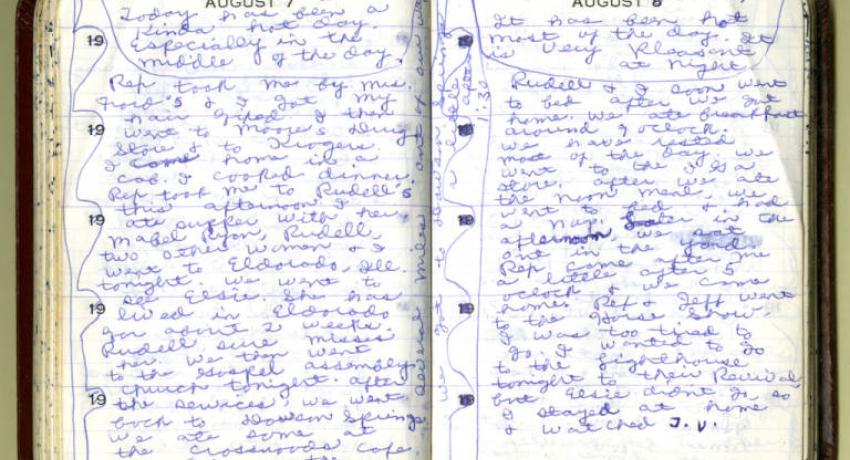 AUGUST 7
Today has been a
kinda hot day.
Especially in the
middle of the day.
19
Rep took me by Mrs.
Ford's & I got my
hair fixed & then
19
went to Moore's Drug
Store & to Krogers.
I come home in a
cab. I cooked dinner.
Rep took me to Rudell's
this afternoon. I
19
ate supper with her.
Mabel Ryon, Rudell,
two other women & I
went to Eldorado, Ill.
tonight. We went to
see Elsie. She has
19
lived in Eldorado
for about 2 weeks.
Rudell sure misses
her. We then went
to the Gospel assembly
Church tonight. After
19
the services, we went
back to Dawson Springs
We ate some at
the Crossroads Cafe.
AUGUST 8
It has been hot
most of the day. It
is very pleasant
at night
19
Rudell & I soon went
to bed after we got
home. We ate breakfast
19
around 9 oclock.
We have rested
most of the day. We
went to the IGA
store. After we ate
the noon meal, we
19
went to bed & had
a nap. Later in the
afternoon, we sat
out in the yard
Rep come after me
a little after 5
oclock & we come
19
home. Rep & Jeff went
to the Horse Show.
I was too tired to
go. I wanted to go
to the Lighthouse
tonight to their Revival,
19
but Elsie didn't go, so
I stayed at home
& watched T.V.
We got to Dawson Springs a little after
1:30
several miles out of our way